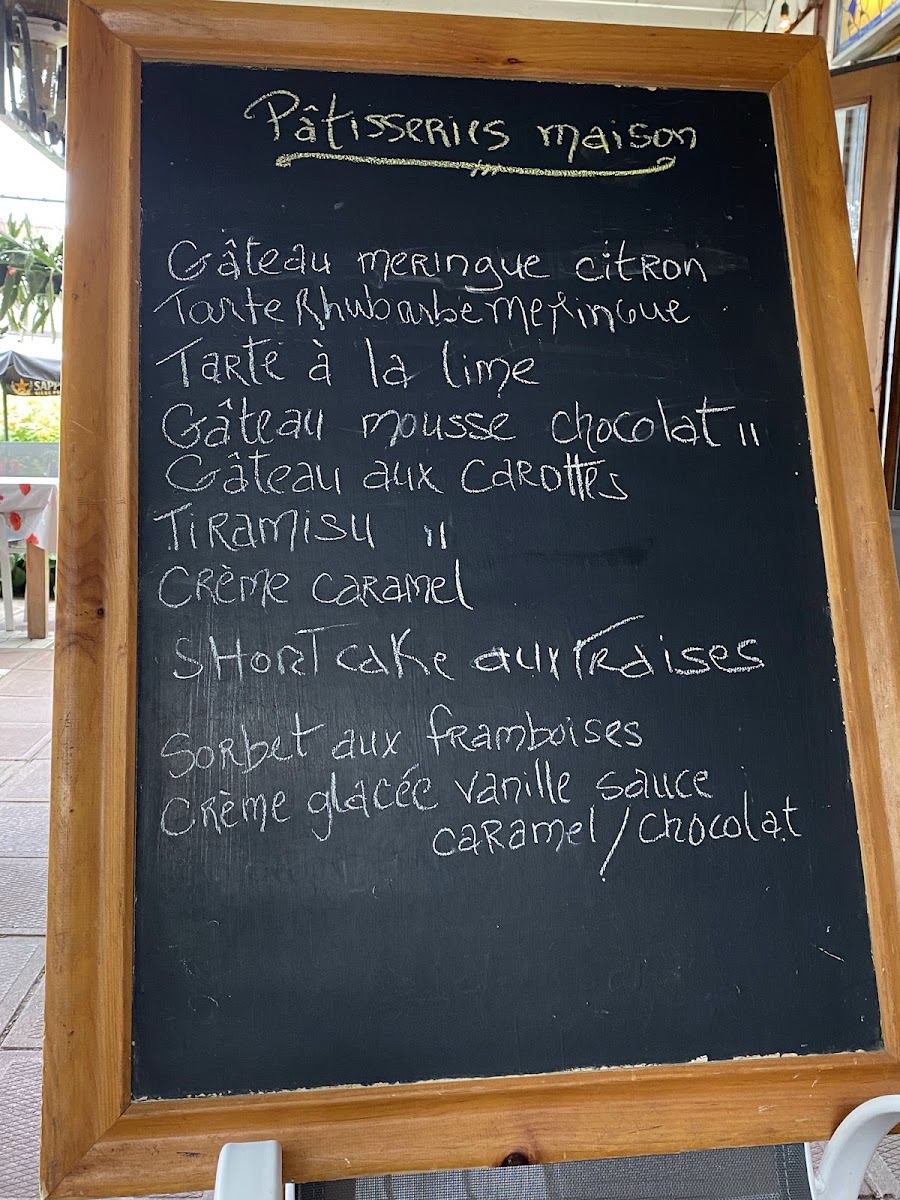 Pâtisseries maison
Gâteau meringue citron
Tarte Rhubarbe meringue
Tarte à la lime
Gâteau mousse chocolat "
Gâteau aux carottes
Tiramisu "
Crème caramel
Shortcake aux fraises
Sorbet aux framboises
Crème glacée vanille sauce
caramel/chocolat
SAPP